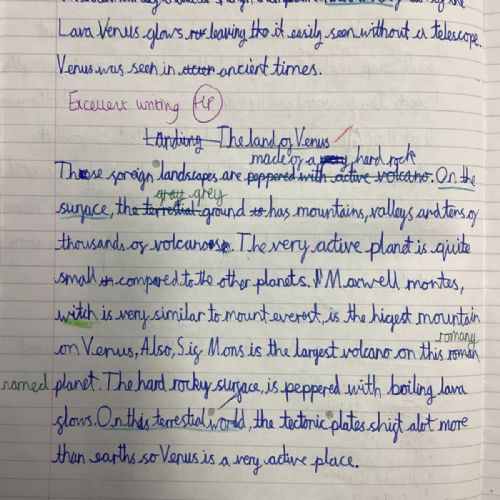 Lava Venus glows leaving the it easily seen without a telescope.
Venus was seen in ancient times.
Excellent writing HP
Landing The land of Venus
made of a very hard rock
These foreign landscapes are peppered with active volcano. On the
gray grey
surface, the terrestial ground to has mountains, valleys and tens of
thousands of volcanoes. The very active planet is quite
small in compared to the other planets. Maxwell montes,
witch is very similar to mount everest, is the higest mountain
romany
on Venus, Also, Sif Mons is the largest volcano on this roman
named planet. The hard rocky surface, is peppered with boiling lava
flows. On this terrestial world, the tectonic plates shift alot more
than earths so Venus is a very active place.